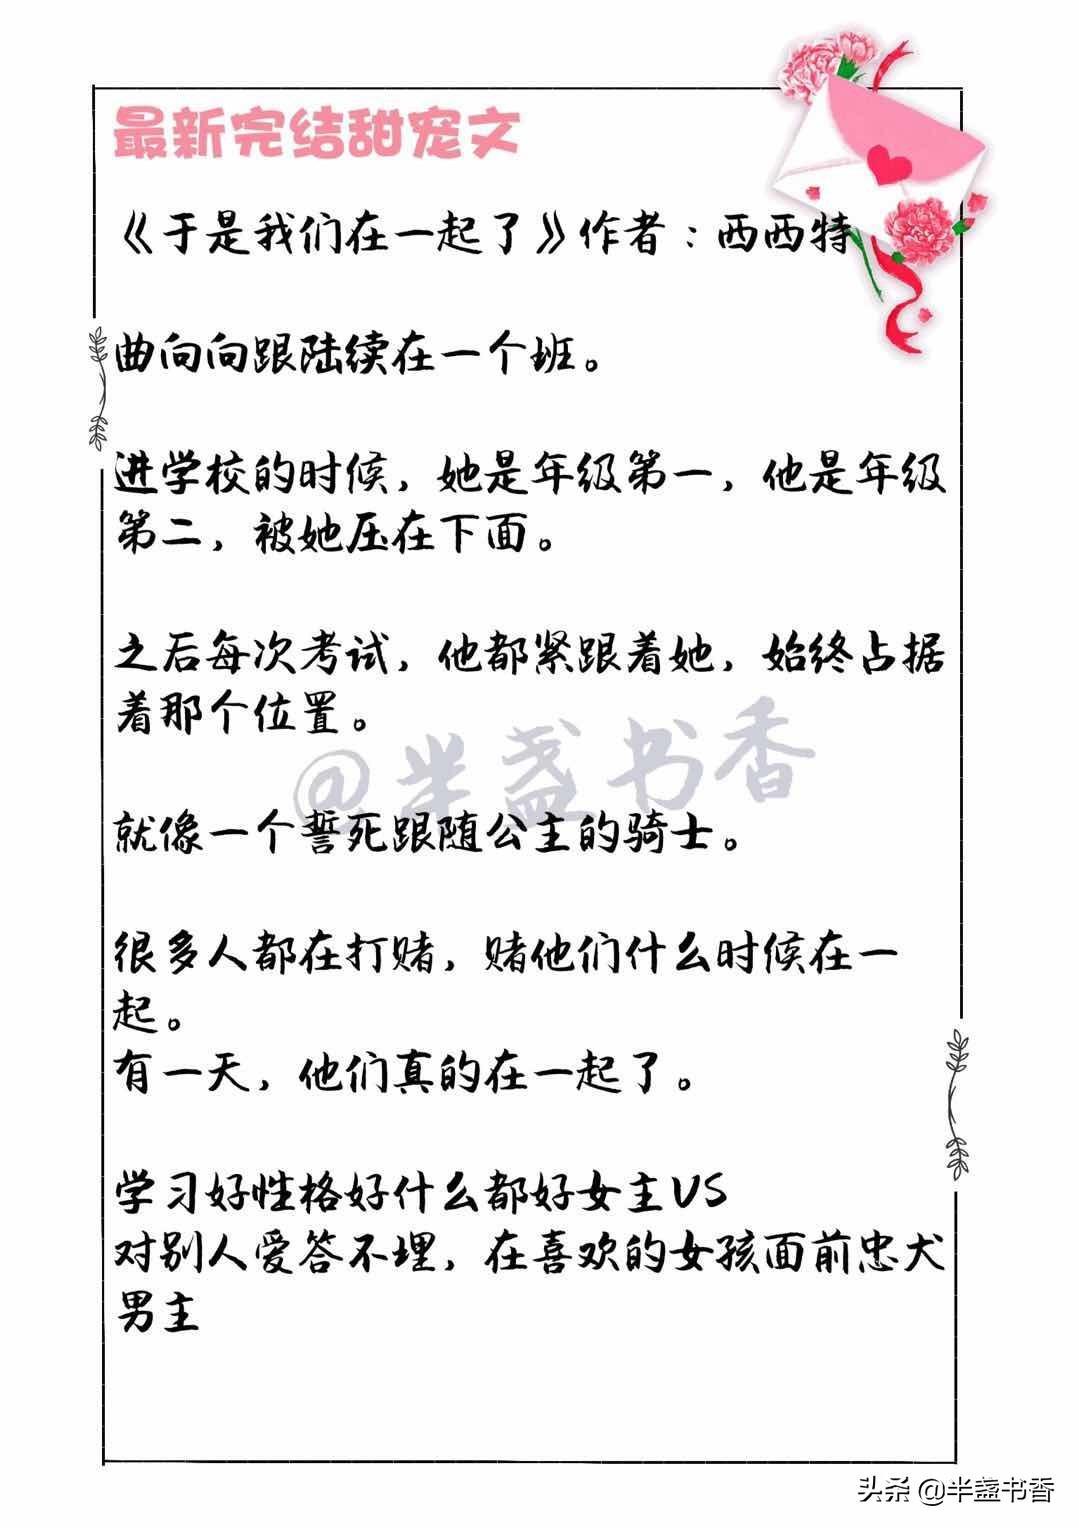 最新完结甜宠文
《于是我们在一起了》作者：西西特
曲向向跟陆续在一个班。
进学校的时候，她是年级第一，他是年级
第二，被她压在下面。
之后每次考试，他都紧跟着她，始终占据
着那个位置。
@半盏书香
就像一个誓死跟随公主的骑士。
很多人都在打赌，赌他们什么时候在一
起。
有一天，他们真的在一起了。
学习好性格好什么都好女主VS
对别人爱答不理，在喜欢的女孩面前忠犬
男主
头条 @半盏书香